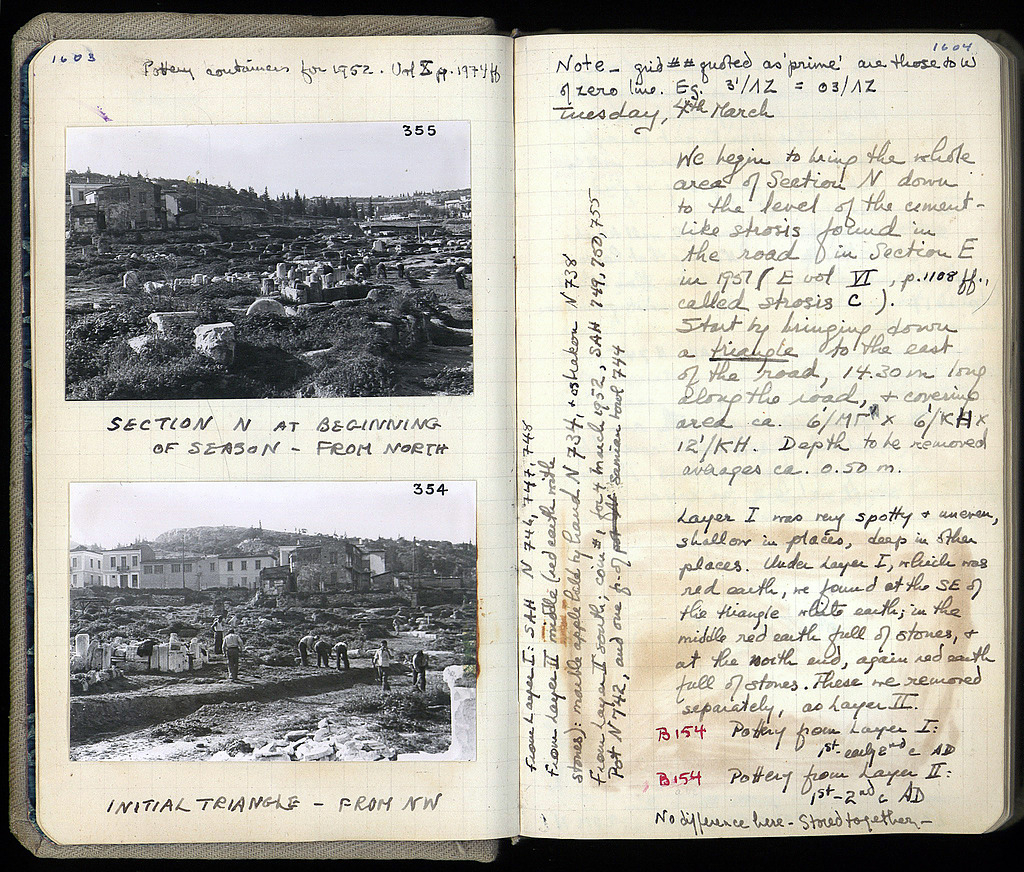 1603
Pottery containers for 1952. Vol X pp. 1974 ff
355
SECTION N AT BEGINNING
OF SEASON - FROM NORTH
354
INITIAL TRIANGLE - FROM NW
1604
Note - grid ## quoted as 'prime' are those to W
of zero line. Eg. 3'/ΙΖ = 03/ΙΖ
Tuesday, 4th March
We begin to bring the whole
area of Section N down
to the level of the cement-
like strosis found in
the road in Section E
in 1951 (E vol VI, p. 1108 ff.,
called strosis C).
Start by bringing down
a triangle to the east
of the road, 14.30 m long
along the road, + covering
area ca. 6'/ΜΓ x 6'/ΚΗ x
12'/ΚΗ. Depth to be removed
averages ca. 0.50 m.
Layer I was very spotty + uneven,
shallow in places, deep in other
places. Under Layer I, which was
red earth, we found at the SE of
the triangle white earth; in the
middle red earth full of stones, +
at the north end, again red earth
full of stones. These we removed
separately, as Layer II.
B 154 Pottery from Layer I:
1st-early 2nd c AD
B 154 Pottery from Layer II:
1st-2nd c AD
No difference here - Stored together -
From Layer I: SAH N 746, 747, 748
From Layer II middle (red earth with
stones): marble apple held by hand N 734, + ostrakon N 738
From Layer II south; coin #1 for 4 March 1952, SAH 749, 750, 755
Pot N 742, and one fr. of Samian bowl 744